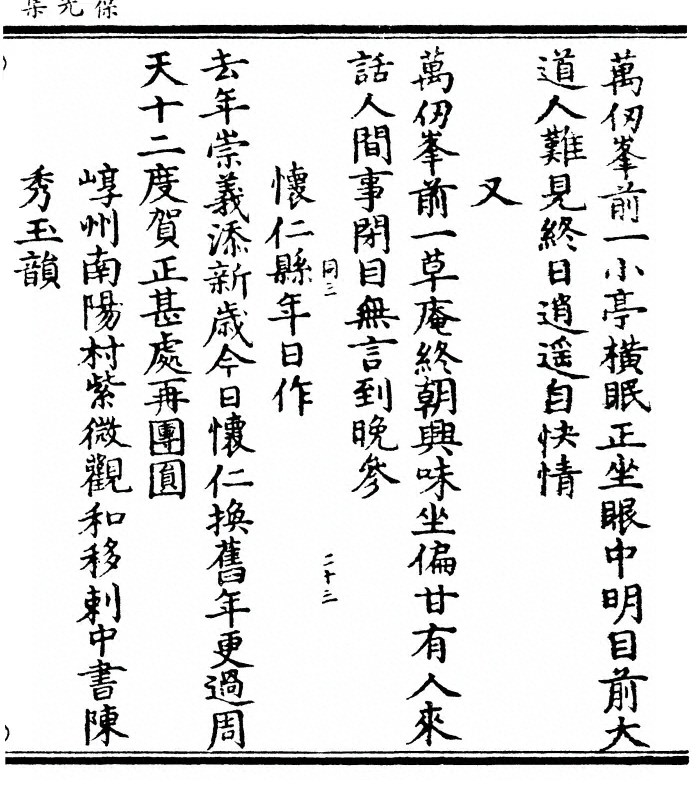 萬仞峯前一小亭橫眠正坐眼中明目前大
道人難見終日逍遥自快情
又
萬仞峯前一草庵終朝興味坐偏甘有人來
話人間事閉目無言到晚參
同三
二十三
懷仁縣年日作
去年崇義添新歲今日懷仁換舊年更過周
天十二度賀正甚處再團圓
崞州南陽村紫微觀和移剌中書陳
秀玉韻